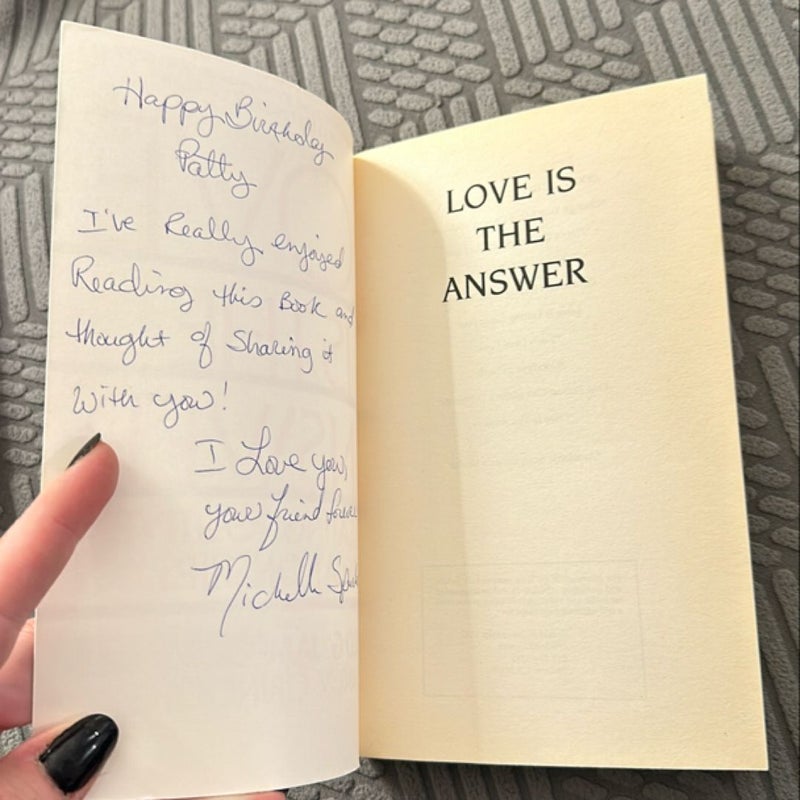 Happy Birthday
Patty
I've Really enjoyed
Reading this Book and
thought of Sharing it
With you!
I Love you,
your friend forever
Michelle
LOVE IS
THE
ANSWER